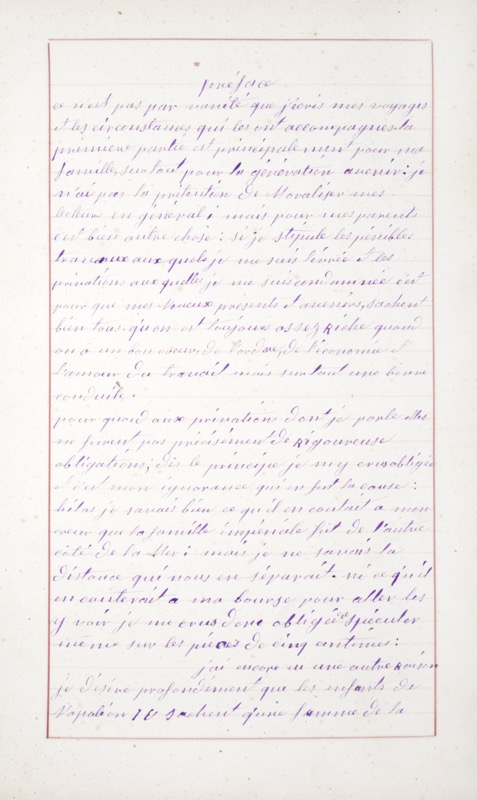 préface
ce n'est pas par vanité que j'écris mes voyages
et les circonstances qui les ont accompagnés. la
première partie est principalement pour ma
famille, surtout pour la génération avenir: je
n'ai pas la prétention de Moraliser mes
en général; mais pour mes parents
c'est bien autre chose: si je stipule les pénibles
travaux aux quels je me suis livrée et les
privations aux quelles je me suis condamnée c'est
pour que mes neveux présents et aveniers, sachent
bien tous qu'on est toujours assez Riche quand
on a un bon cœur, de l'ordre, de l'économie et
l'amour du travail mais surtout une bonne
conduite.
pour quand aux privations dont je parle elles
ne furent pas précisément de Rigoureuse
obligations; dès le principe je m'y crus obligée
et c'est mon ignorance qui en fut la cause:
hélas je savais bien ce qu'il en coutait a mon
cœur que la famille impériale fut de l'autre
côté de la Mer: mais je ne savais la
distance qui nous en séparait. ni ce qu'il
en couterait a ma bourse pour aller les
y voir je me crus donc obligée de spéculer
même sur les pièces de cinq centimes:
j'ai encore eu une autre Raison
je désire profondément que les enfants de
Napoléon IV sachent qu'une femme de la